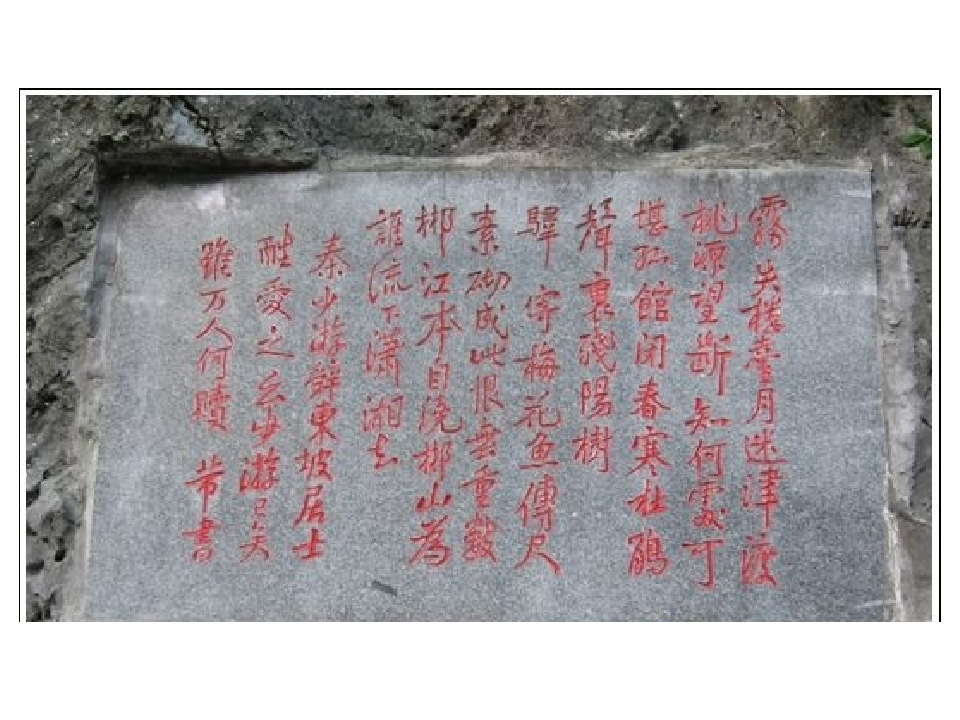 霧失樓臺月迷津渡
桃源望斷知何處可
堪孤館閉春寒杜鵑
聲裏殘陽樹
驛寄梅花魚傳尺
素砌成此恨無重數
郴江本自遶郴山為
誰流下瀟湘去
秦少游辭東坡居士
酷愛之云少游已矣
雖万人何贖 芾書